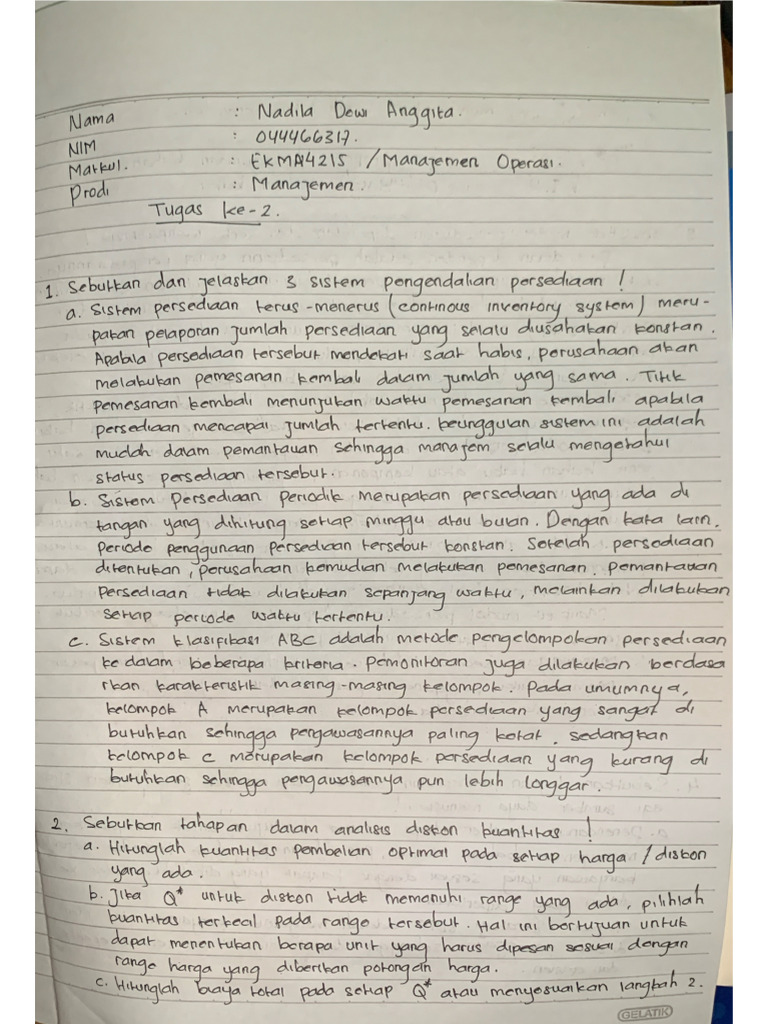 Nama : Nadila Dewi Anggita.
NIM : 044466317.
Matkul. : EKMA4215 / Manajemen Operasi.
Prodi : Manajemen.
Tugas ke-2.
1. Sebutkan dan jelaskan 3 sistem pengendalian persediaan !
a. Sistem persediaan terus-menerus (continous inventory system) meru-
pakan pelaporan jumlah persediaan yang selalu diusahakan konstan.
Apabila persediaan tersebut mendekati saat habis, perusahaan akan
melakukan pemesanan kembali dalam jumlah yang sama. Titik
pemesanan kembali menunjukan waktu pemesanan kembali apabila
persediaan mencapai jumlah tertentu. keunggulan sistem ini adalah
mudah dalam pemantauan sehingga manajem selalu mengetahui
status persediaan tersebut.
b. Sistem Persediaan periodik merupakan persediaan yang ada di
tangan yang dihitung setiap minggu atau bulan. Dengan kata lain,
periode penggunaan persediaan tersebut konstan. Setelah persediaan
ditentukan, perusahaan kemudian melakukan pemesanan. pemantauan
persediaan tidak dilakukan sepanjang waktu, melainkan dilakukan
setiap periode waktu tertentu.
c. Sistem klasifikasi ABC adalah metode pengelompokan persediaan
ke dalam beberapa kriteria. Pemonitoran juga dilakukan berdasa
rkan karakteristik masing-masing kelompok. pada umumnya,
kelompok A merupakan kelompok persediaan yang sangat di
butuhkan sehingga pengawasannya paling ketat. sedangkan
kelompok c merupakan kelompok persediaan yang kurang di
butuhkan sehingga pengawasannya pun lebih longgar.
2. Sebutkan tahapan dalam analisis diskon kuantitas !
a. Hitunglah kuantitas pembelian optimal pada setiap harga / diskon
yang ada.
b. Jika Q* untuk diskon tidak memenuhi range yang ada, pilihlah
kuantitas terkecil pada range tersebut. Hal ini bertujuan untuk
dapat menentukan berapa unit yang harus dipesan sesuai dengan
range harga yang diberikan potongan harga.
c. Hitunglah biaya total pada setiap Q* atau menyesuaikan langkah 2.
GELATIK